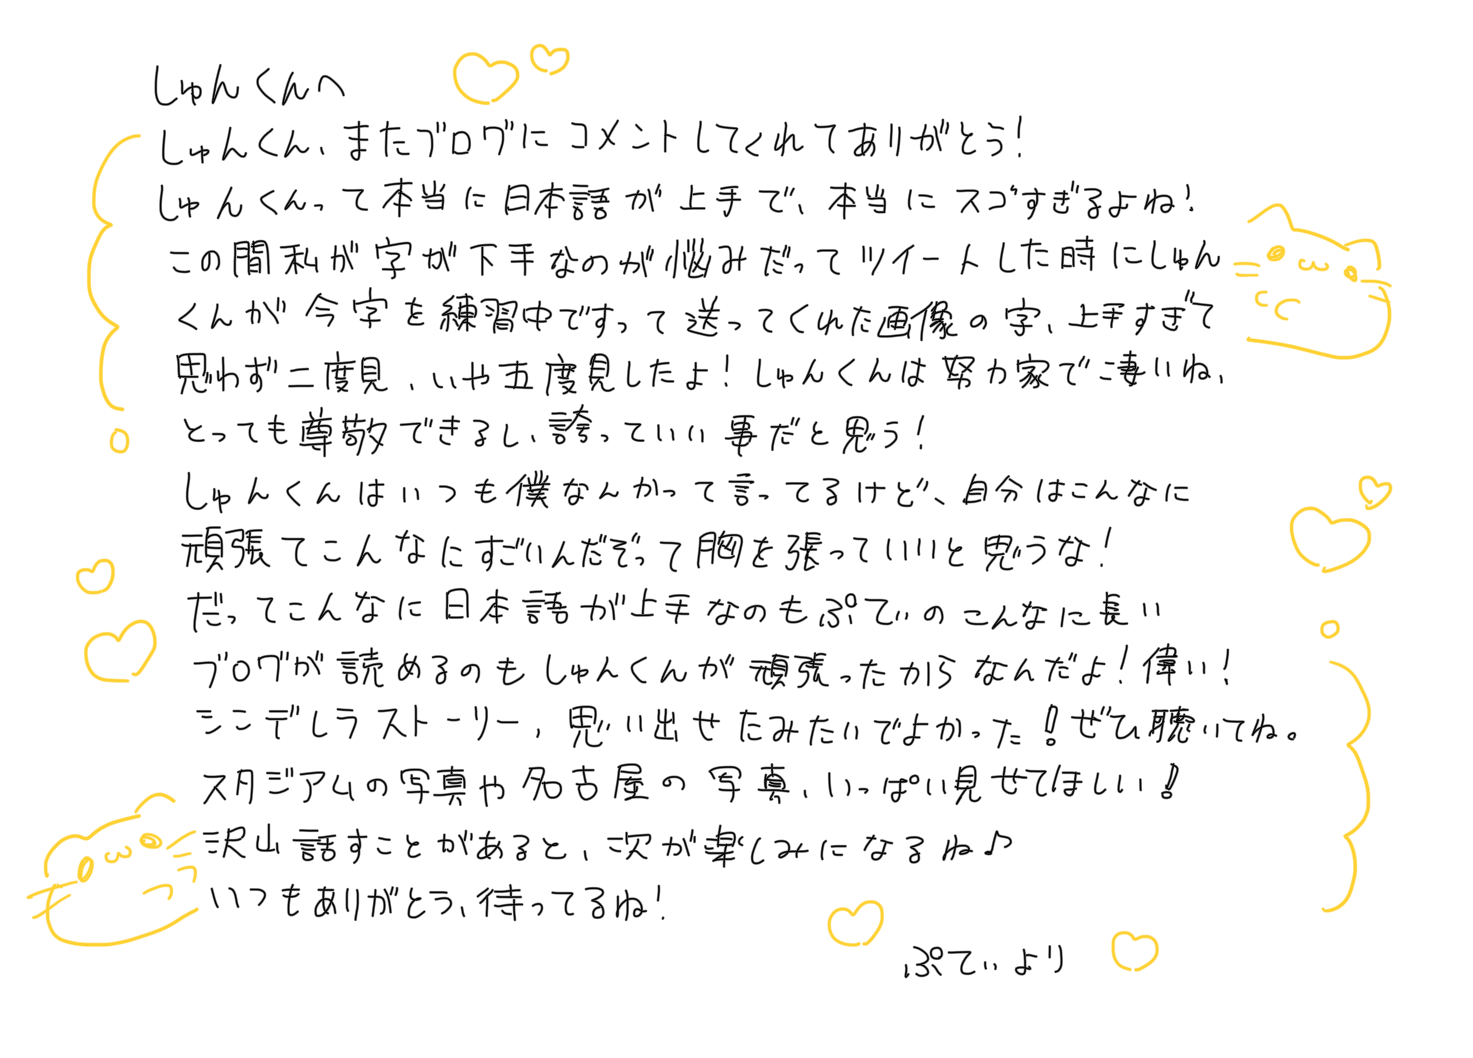 しゅんくんへ
しゅんくん、またブログにコメントしてくれてありがとう！
しゅんくんって本当に日本語が上手で、本当にスゴすぎるよね！
この間私が字が下手なのが悩みだってツイートした時にしゅん
くんが今字を練習中ですって送ってくれた画像の字、上手すぎて
思わず二度見、いや五度見したよ！しゅんくんは努力家で凄いね、
とっても尊敬できるし、誇っていい事だと思う！
しゅんくんはいつも僕なんかって言ってるけど、自分はこんなに
頑張てこんなにすごいんだぞって胸を張っていいと思うな！
だってこんなに日本語が上手なのもぷてぃのこんなに長い
ブログが読めるのもしゅんくんが頑張ったからなんだよ！偉い！
シンデレラストーリー、思い出せたみたいでよかった！ぜひ聴いてね。
スタジアムの写真や名古屋の写真、いっぱい見せてほしい！
沢山話すことがあると、次が楽しみになるね♪
いつもありがとう、待ってるね！
ぷてぃより